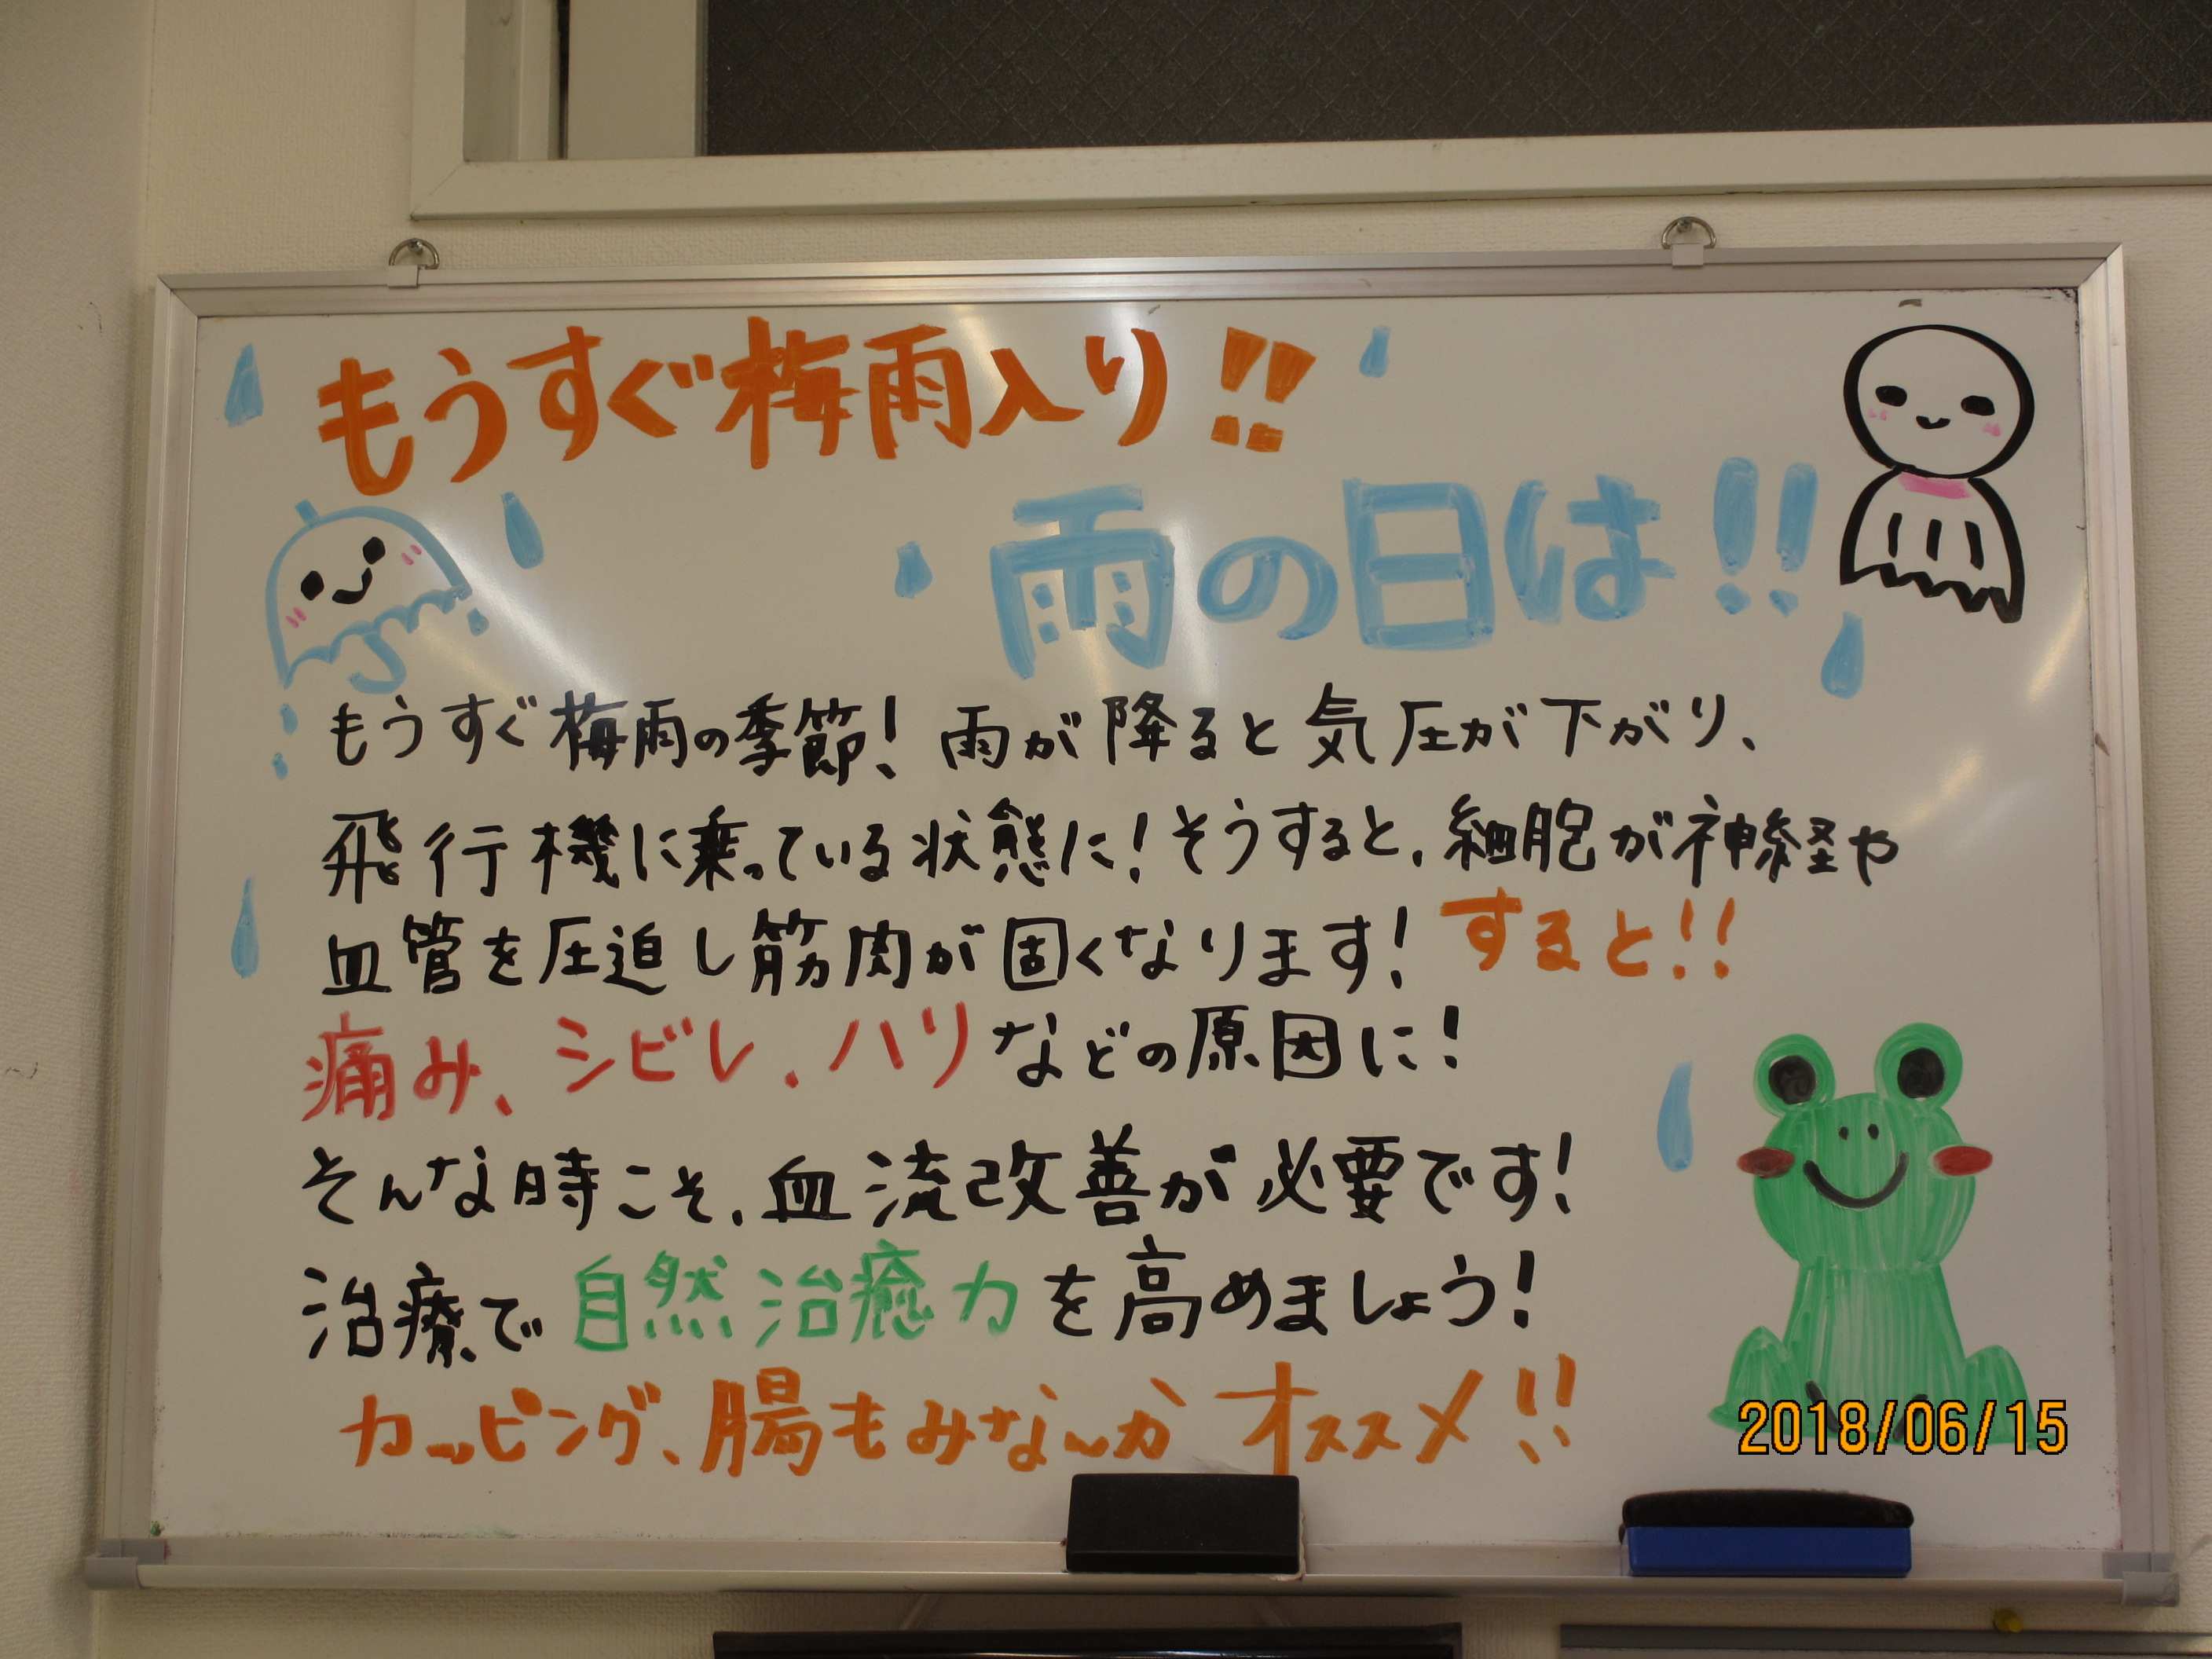 もうすぐ梅雨入り!!
雨の日は!!
もうすぐ梅雨の季節! 雨が降ると気圧が下がり、
飛行機に乗っている状態に! そうすると、細胞が神経や
血管を圧迫し筋肉が固くなります! すると!!
痛み、シビレ、ハリなどの原因に!
そんな時こそ、血流改善が必要です!
治療で自然治癒力を高めましょう!
カッピング、腸もみなんかオススメ!!
2018/06/15